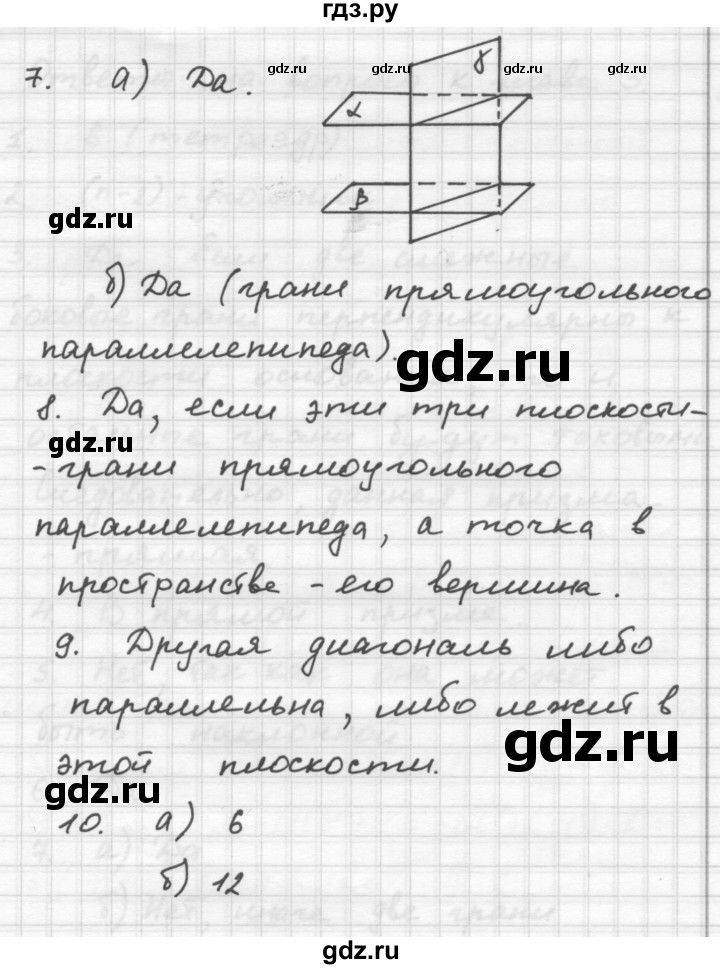 гдз.ру
7. а) Да.
γ
α
β
б) Да (грани прямоугольного
параллелепипеда).
8. Да, если эти три плоскости-
-грани прямоугольного
параллелепипеда, а точка в
пространстве - его вершина.
9. Другая диагональ либо
параллельна, либо лежит в
этой плоскости.
10. а) 6
б) 12
gdz.ru
gdz.ru
gdz.ru
gdz.ru
gdz.ru
gdz.ru
gdz.ru
gdz.ru
gdz.ru
gdz.ru
gdz.ru
gdz.ru
gdz.ru
gdz.ru